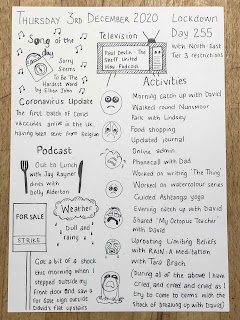 THURSDAY 3RD DECEMBER 2020
Lockdown
Day 255
with North-East
Tier 3 restrictions
Song of the
day
Sorry
Seems
To Be The
Hardest Word
by Elton John
Television
Paul Dentin - The
Sheff United
Views Podcast
Coronavirus Update
The first batch of Covid
vaccines arrive in the uk,
having been sent from Belgium
Podcast
Out to Lunch
with Jay Rayner
dines with
Dolly Alderton
Weather
Dull and
rainy
FOR SALE
STRIKE
Got a bit of a shock
this morning when I
stepped outside my
front door and saw a
for sale sign outside
David's flat upstairs
Activities
Morning catch up with David
Walked round Nunsmoor
Park with Lindsey
Food shopping
Updated journal
Online admin
Phonecall with Dad
Worked on writing 'The Thing'
Worked on watercolour series
Guided Ashtanga yoga
Evening catch up with David
Shared 'My Octopus Teacher'
with David
Uprooting Limiting Beliefs
with RAIN: A Meditation
with Tara Brach
(During all of the above I have
cried, and cried and cried as I
try to come to terms with the
shock of Amazing up with David)